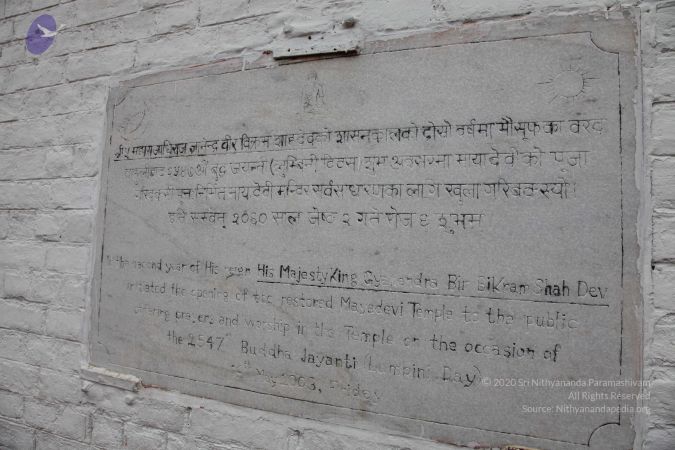 श्री ५ महाराजाधिराज ज्ञानेन्द्र वीर विक्रम शाहदेवको शासनकालको दोस्रो वर्षमा मौसूफका वरद
२५४७ औं बुद्ध जयन्ती (लुम्बिनी दिवस) शुभ अवसरमा मायादेवीको पूजा
मायादेवी मन्दिर सर्वसाधारणका लागि खुला
सम्वत् २०६० साल जेष्ठ २ गते रोज ६ शुभम् ।
In the second year of His reign His Majesty King Gyanendra Bir Bikram Shah Dev
initiated the opening of the restored Mayadevi Temple to the public
offering prayers and worship in the Temple on the occasion of
the 2547th Buddha Jayanti (Lumpini Day)
May 2003, Friday
© 2020 Sri Nithyananda Paramashivam
All Rights Reserved
Source: Nithyanandapedia.org